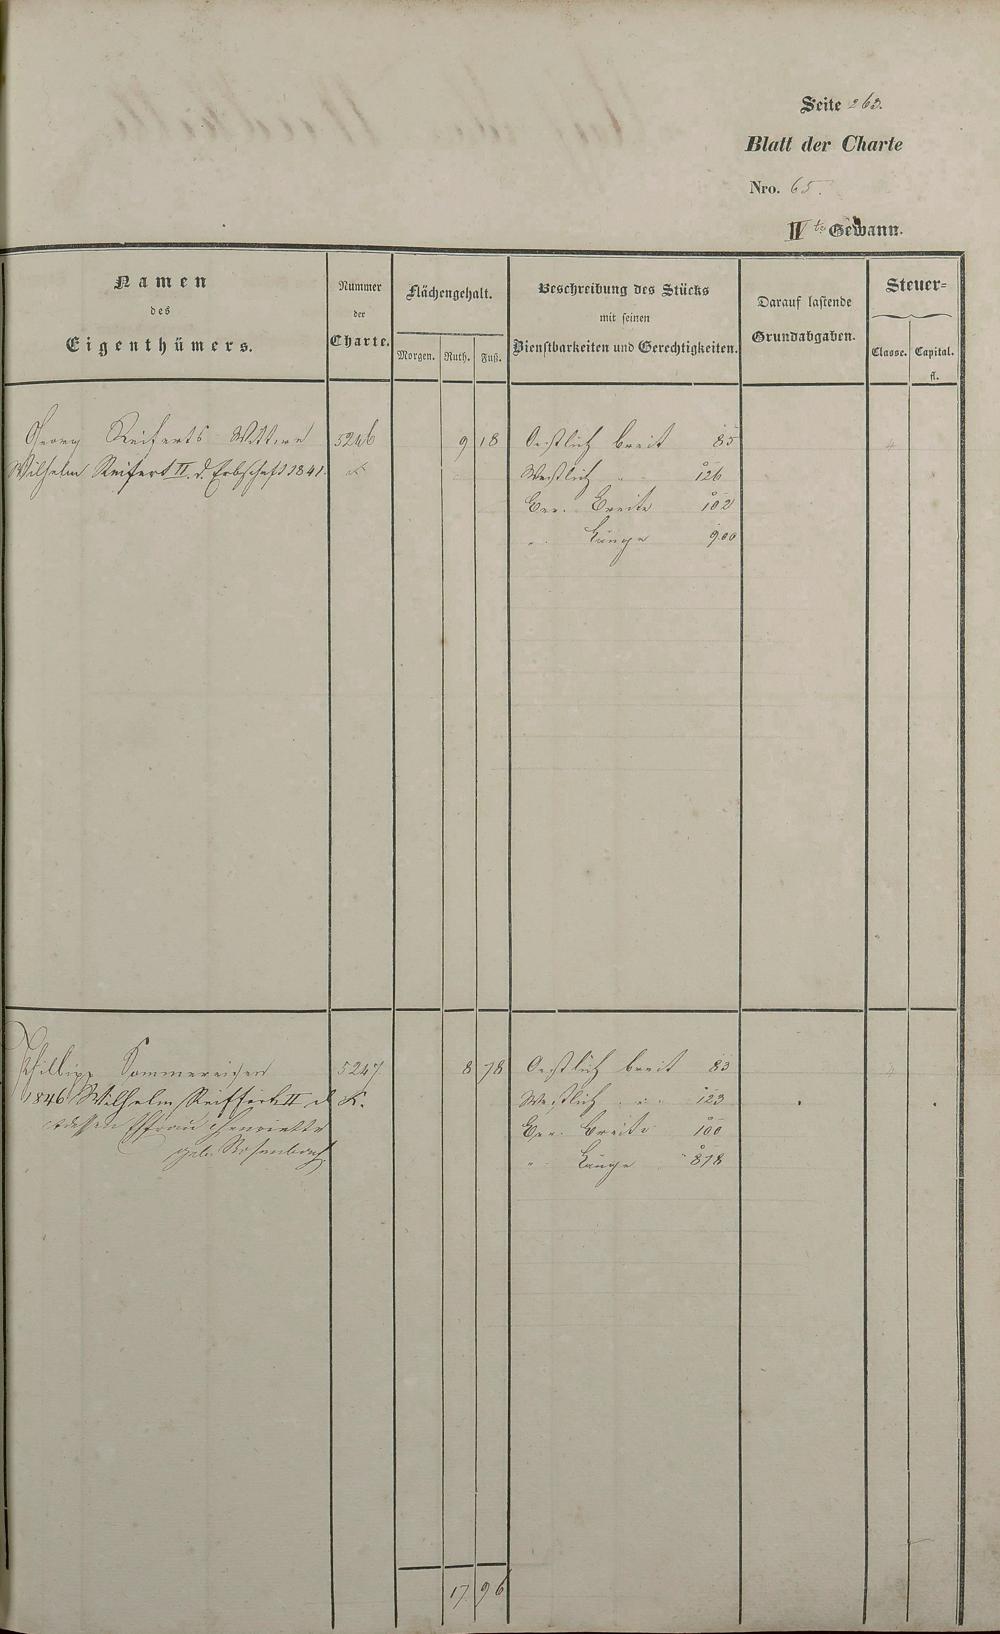 Seite 263.
Blatt der Charte
Nro. 65.
IVte Gewann.
Namen
des
Eigenthümers.
Nummer
der
Charte.
Flächengehalt.
Morgen. Ruth. Fuß.
Beschreibung des Stücks
mit seinen
Dienstbarkeiten und Gerechtigkeiten.
Darauf lastende
Grundabgaben.
Steuer=
Classe. Capital.
fl.
Georg Reiferts Wittwe 5246 9 18 Oestlich breit 85
Wilhelm Reifert II. d. Erbschaft 1841. Westlich " 126
Ger. Breite 102
" Länge 900
Philipp Sommereisen 5247 8 78 Oestlich breit 83
1846 Wilhelm Reiffert II d. K. Westlich " 123
dessen Ehefrau Henriette Ger. Breite 100
geb. Rosenbach " Länge 878
17 96